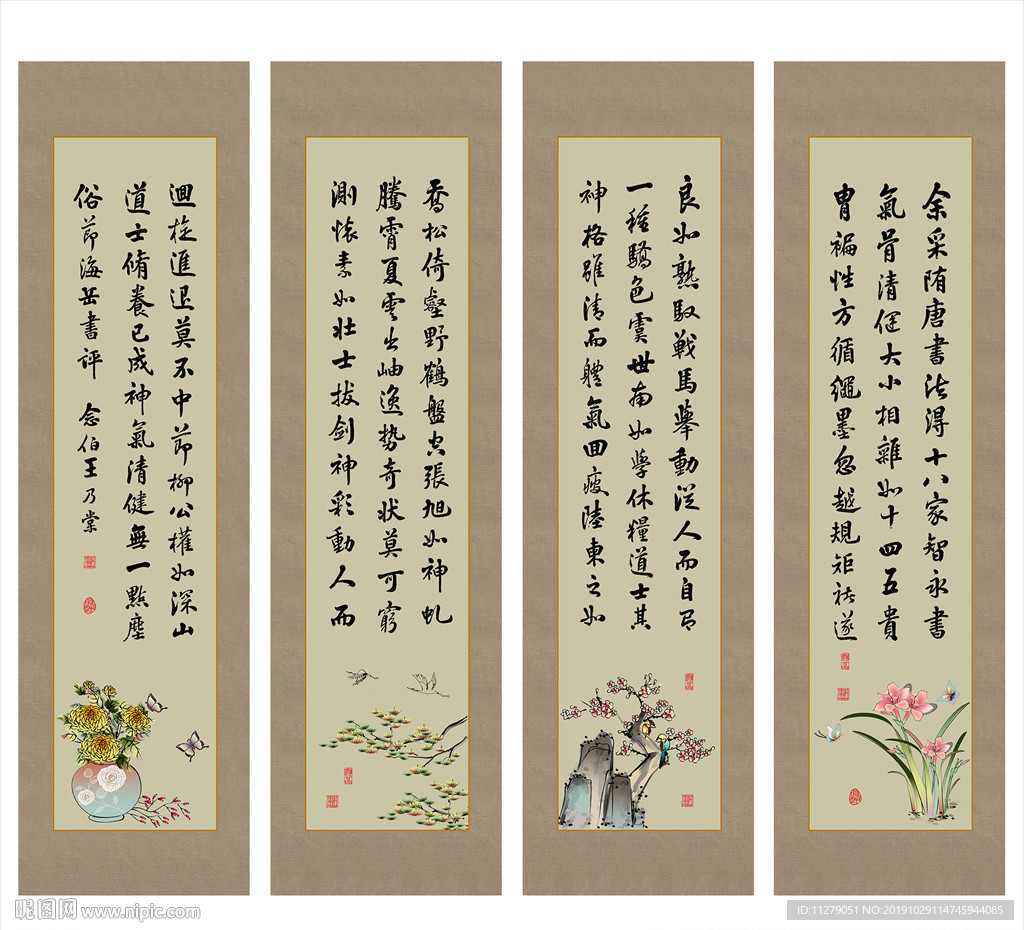 余采隋唐書法得十八家智永書
氣骨清健大小相雜如十四五貴
胄褊性方循繩墨忽越規矩褚遂
良如熟馭戰馬舉動從人而自有
一種驕色虞世南如學休糧道士其
神格雖清而體氣回疲陸柬之如
喬松倚壑野鶴盤空張旭如神虬
騰霄夏雲出岫逸勢奇状莫可窮
測懷素如壮士拔劍神彩動人而
迴旋進退莫不中節柳公權如深山
道士脩養已成神氣清健無一點塵
俗節海岳書評
念伯王乃棠
昵图网 www.nipic.com
ID:11279051 NO:20191029114745944085